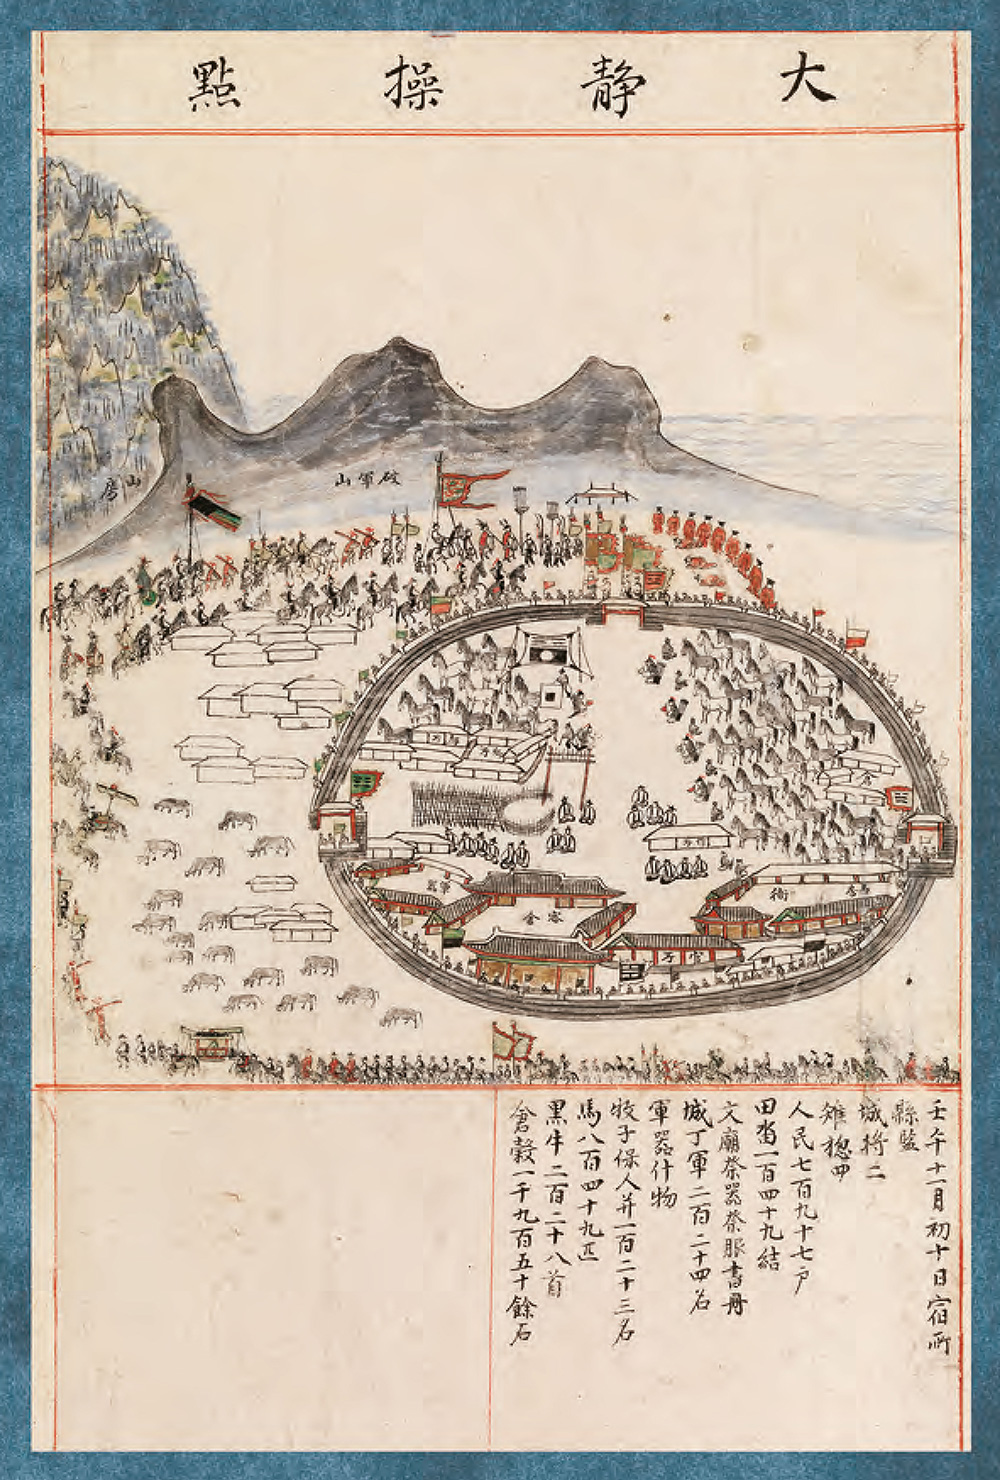 大靜操點
山房
破軍山
客舍
衙
官廳
軍器
倉
壬午十一月初十日宿所
縣監
城將二
雉摠四
人民七百九十七戶
田畓一百四十九結
文廟祭器祭服書冊
城丁軍二百二十四名
軍器什物
牧子保人并一百二十三名
馬八百四十九匹
黑牛二百二十八首
倉穀一千九百五十餘石